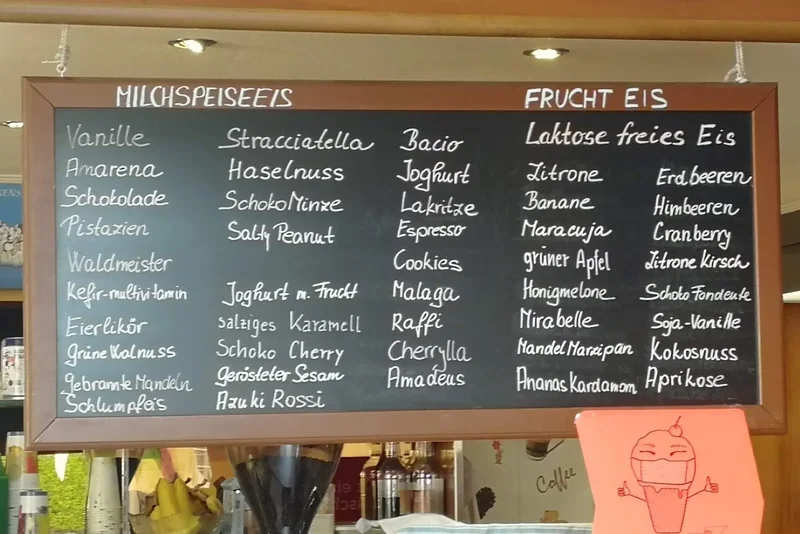 MILCHSPEISEEIS
Vanille
Amarena
Schokolade
Pistazien
Waldmeister
Kefir-multivitamin
Eierlikör
grüne Walnuss
gebrannte Mandeln
Schlumpfeis
Stracciatella
Haselnuss
SchokoMinze
Salty Peanut
Joghurt m. Frucht
salziges Karamell
Schoko Cherry
gerösteter Sesam
Azuki Rossi
Bacio
Joghurt
Lakritze
Espresso
Cookies
Malaga
Raffi
Cherrylla
Amadeus
FRUCHT EIS
Laktose freies Eis
Zitrone
Banane
Maracuja
grüner Apfel
Honigmelone
Mirabelle
Mandel Marzipan
Ananas Kardamom
Erdbeeren
Himbeeren
Cranberry
Zitrone Kirsch
Schoko Fondente
Soja-Vanille
Kokosnuss
Aprikose
Coffee